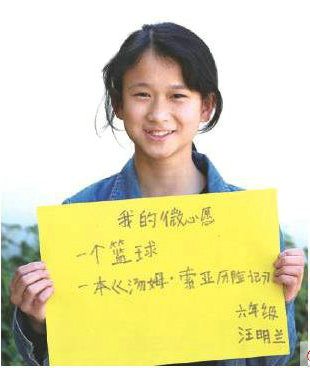 我的微心愿
一个篮球
一本《汤姆·索亚历险记》
六年级
汪明兰